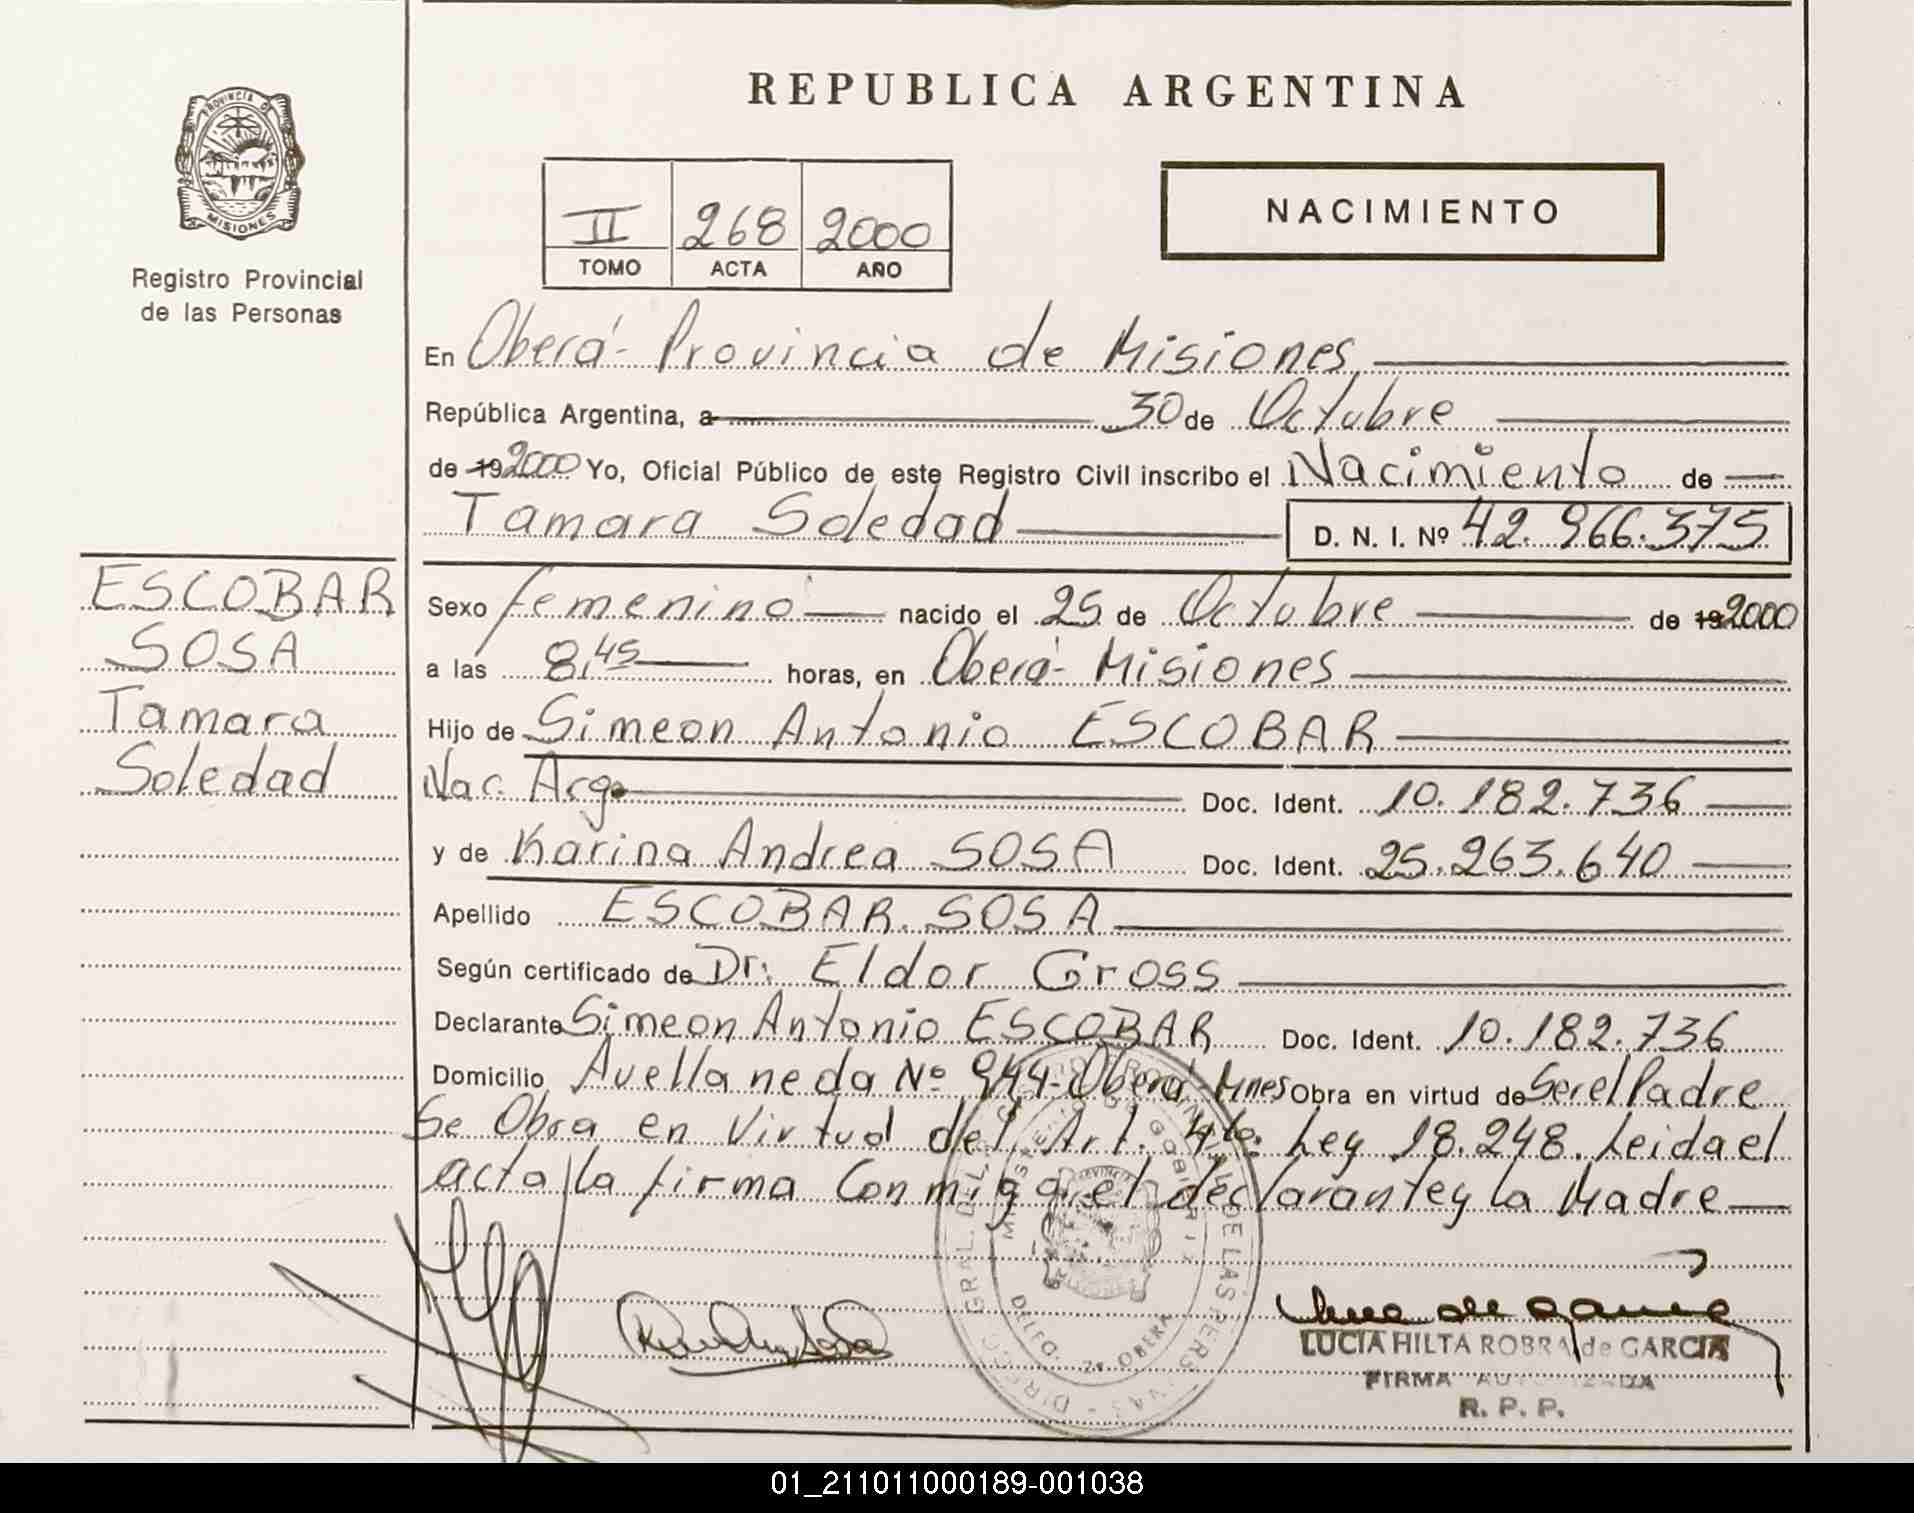 PROVINCIA DE
MISIONES
Registro Provincial
de las Personas
REPUBLICA ARGENTINA
II 268 2000
TOMO ACTA AÑO
NACIMIENTO
En Oberá - Provincia de Misiones
República Argentina, a 30 de Octubre
de 19 2000 Yo, Oficial Público de este Registro Civil inscribo el Nacimiento de
Tamara Soledad D. N. I. Nº 42.966.375
ESCOBAR
SOSA
Tamara
Soledad
Sexo femenino nacido el 25 de Octubre de 19 2000
a las 8,45 horas, en Oberá - Misiones
Hijo de Simeon Antonio ESCOBAR
Nac. Arg. Doc. Ident. 10.182.736
y de Karina Andrea SOSA Doc. Ident. 25.263.640
Apellido ESCOBAR SOSA
Según certificado de Dr. Eldor Gross
Declarante Simeon Antonio ESCOBAR Doc. Ident. 10.182.736
Domicilio Avellaneda Nº 944 - Oberá, Mnes Obra en virtud de Ser el Padre
Se Obra en Virtud del Art. 4to: Ley 18.248. Leida el
acta la firma Conmigo el declarante y la Madre
LUCIA HILTA ROBRA de GARCIA
FIRMA AUTORIZADA
R. P. P.
01_211011000189-001038